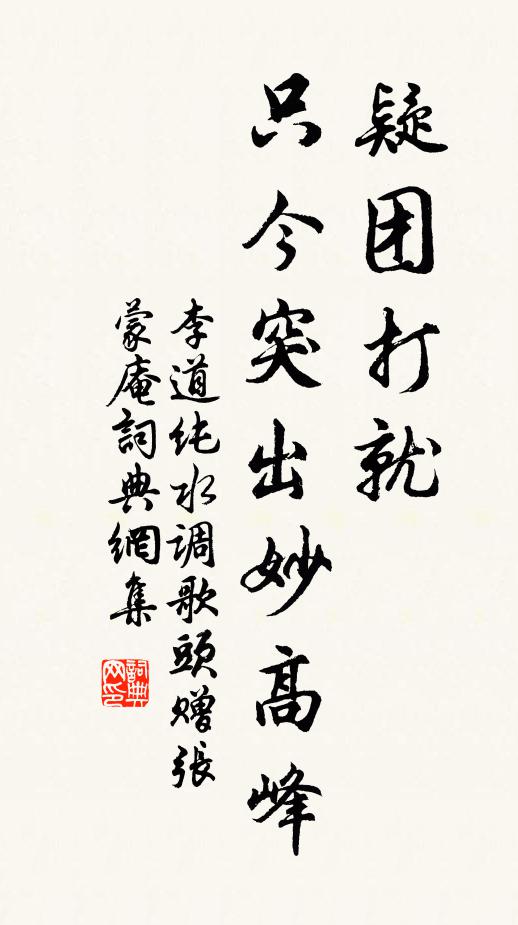 疑团打就
只今突出妙高峰
李道纯水调歌頭赠張
蒙庵詞典網集
詞典
网印